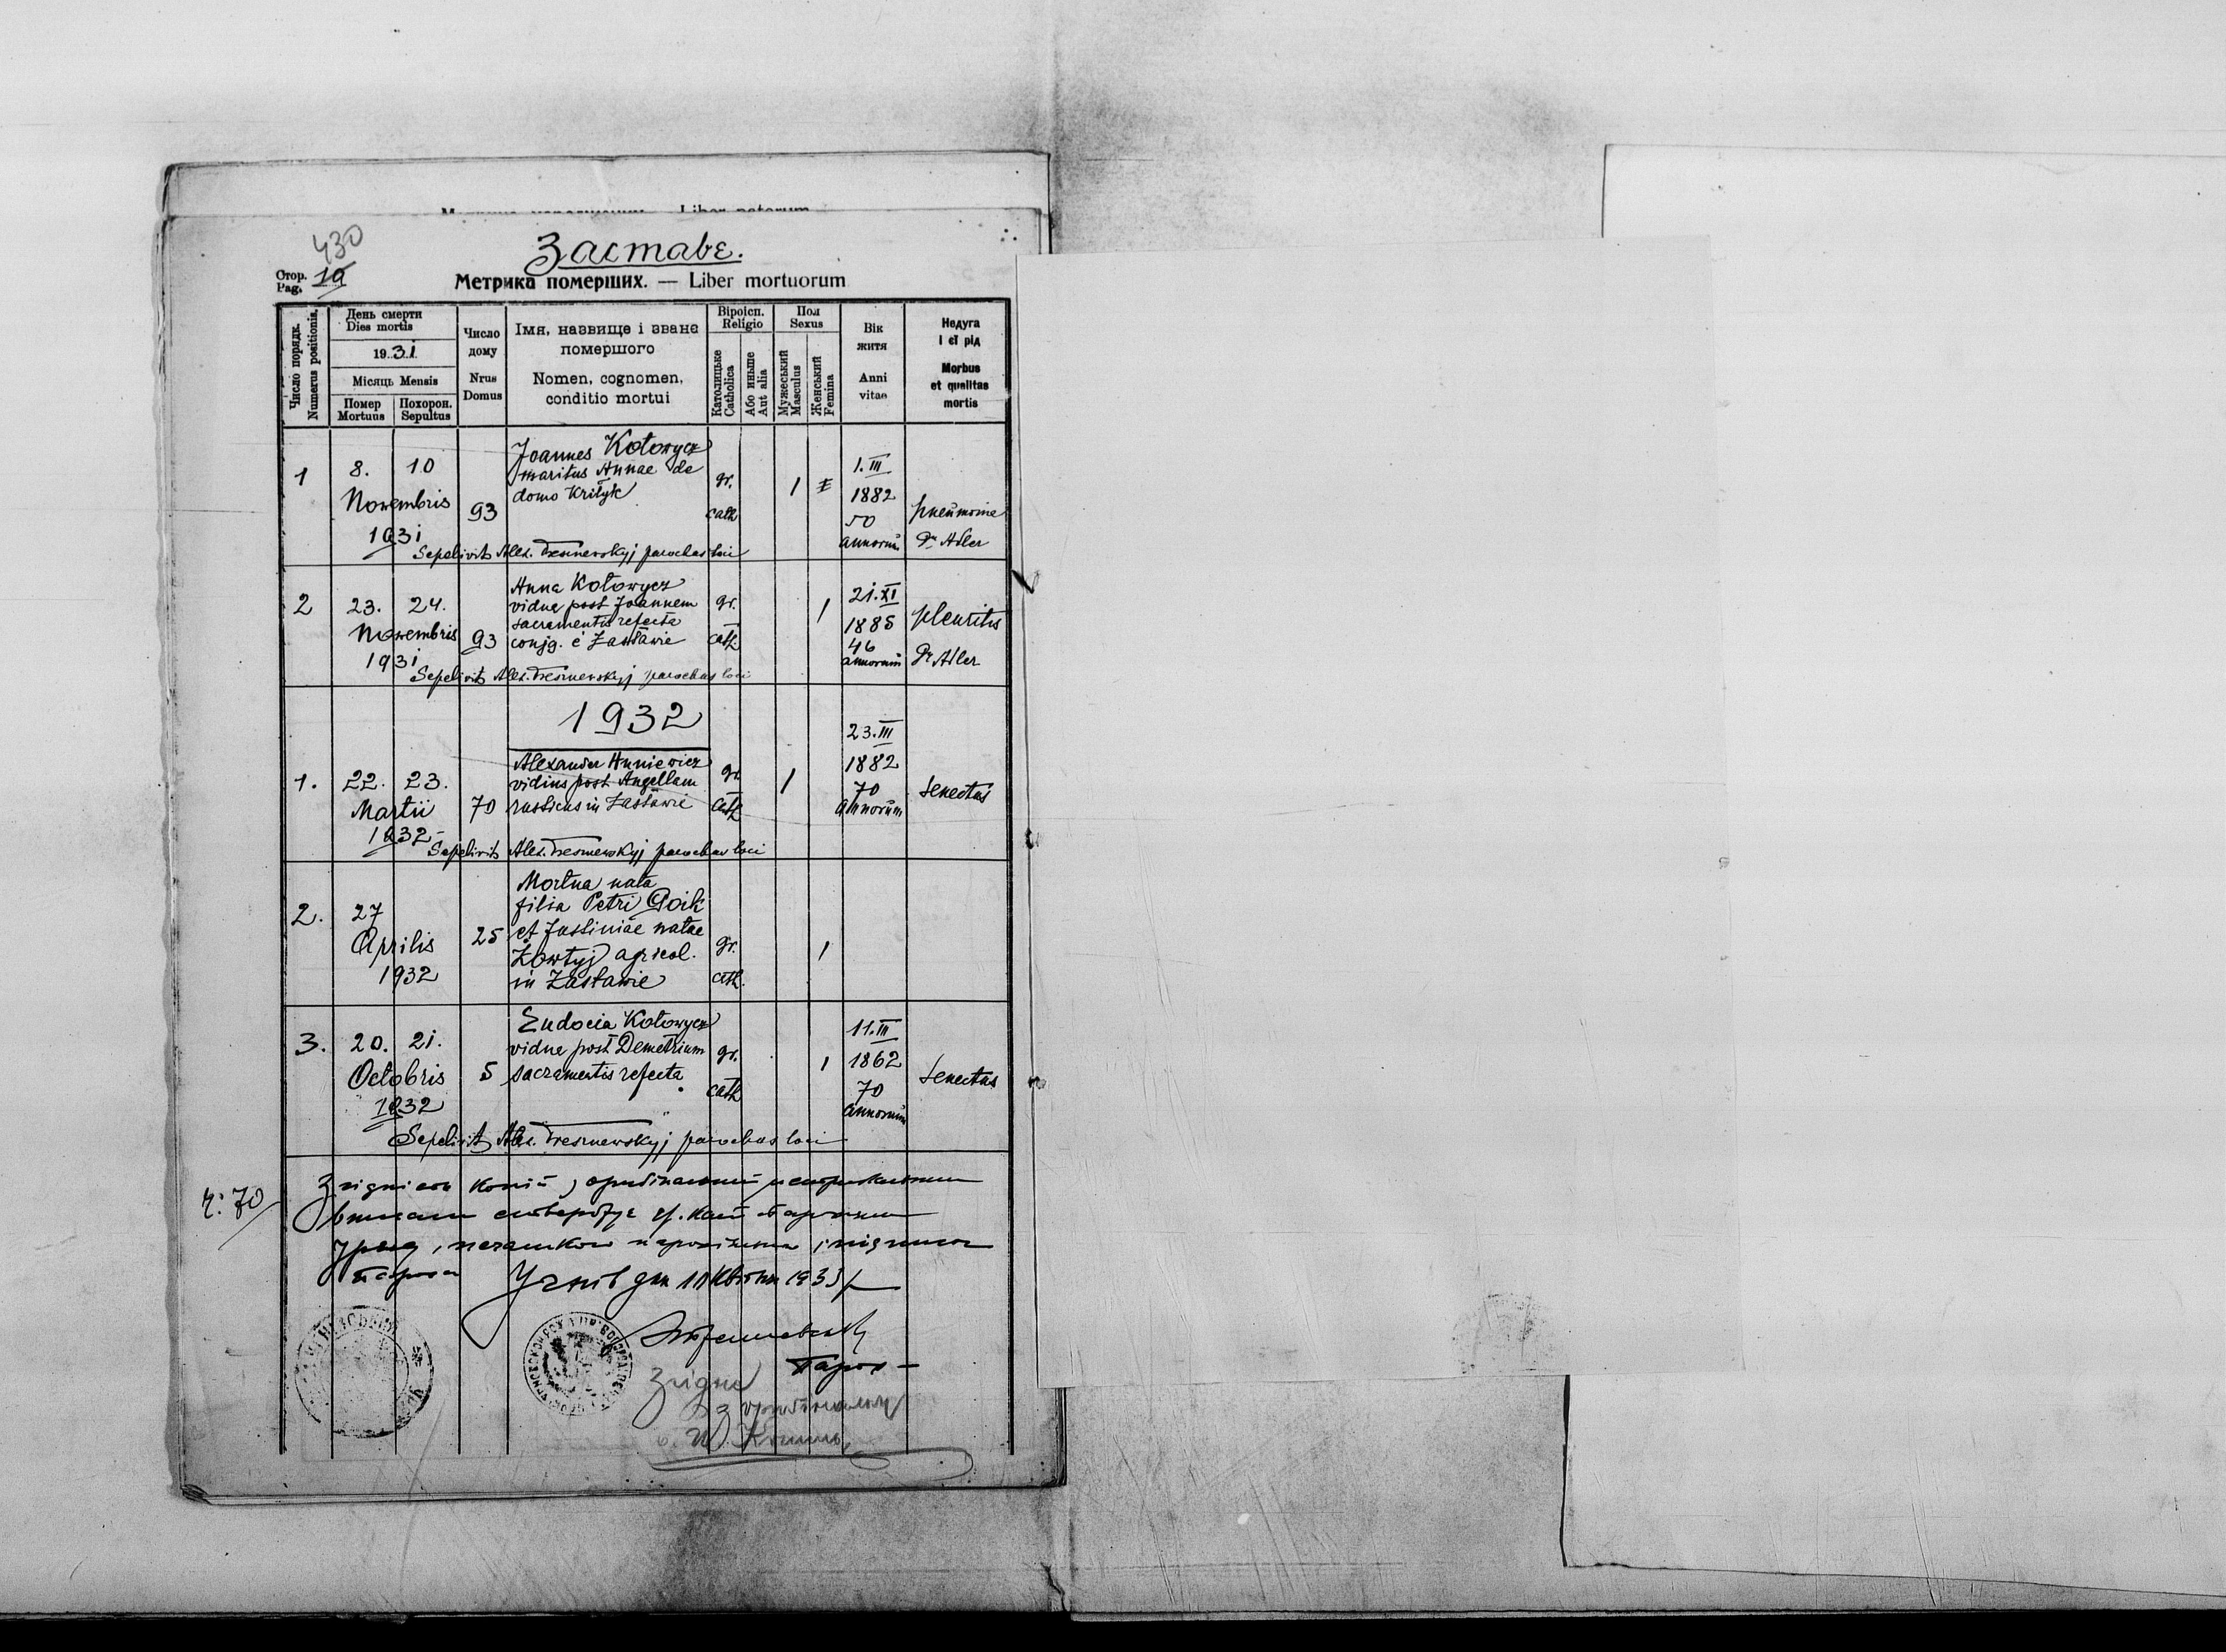 430
Заставє.
Стор. Pag. 10
Метрика померших. — Liber mortuorum
Число порядк. Numerus positionis.
День смерти Dies mortis
1931
Місяць Mensis
Помер Mortuus
Похорон. Sepultus
Число дому
Nrus Domus
Імя, назвище і званє помершого
Nomen, cognomen, conditio mortui
Віроісп. Religio
Католицьке Catholica
Або иньше Aut alia
Пол Sexus
Мужеський Masculus
Женський Femina
Вік житя
Anni vitae
Недуга і єї рід
Morbus et qualitas mortis
1
8. 10
Novembris
1931
93
Joannes Kotowycz
maritus Annae de
domo Krityk
gr.
cath
1
1. III
1882
50
annorum
pneumonie
Dr Adler
Sepelivit Alex. parochus loci
2
23. 24.
Novembris
1931
93
Anna Kotowycz
vidua post Joannem
sacramentis refecta
conjg. é Zastawie
gr.
cath.
1
21. XI
1885
46
annorum
pleuritis
Dr Adler
Sepelivit Alex. parochus loci
1932
1.
22. 23.
Martii
1932
70
Alexander Huniewicz
vidius post Angellam
rusticus in Zastawie
gr.
cath
1
23. III
1882
70
annorum
senectus
Sepelivit Alex. parochus loci
2.
27
Aprilis
1932
25
Mortua nata
filia Petri Goik
et Justiniae natae
Żowtyj agricol.
in Zastawie
gr.
cath.
1
3.
20. 21.
Octobris
1932
5
Eudocia Kotowycz
vidua post Demetrium
sacramentis refecta
gr.
cath
1
11. III
1862
70
annorum
senectus
Sepelivit Alex. parochus loci
ч: 70
Згідність копії з
Парох
Згідно
з оригіналом